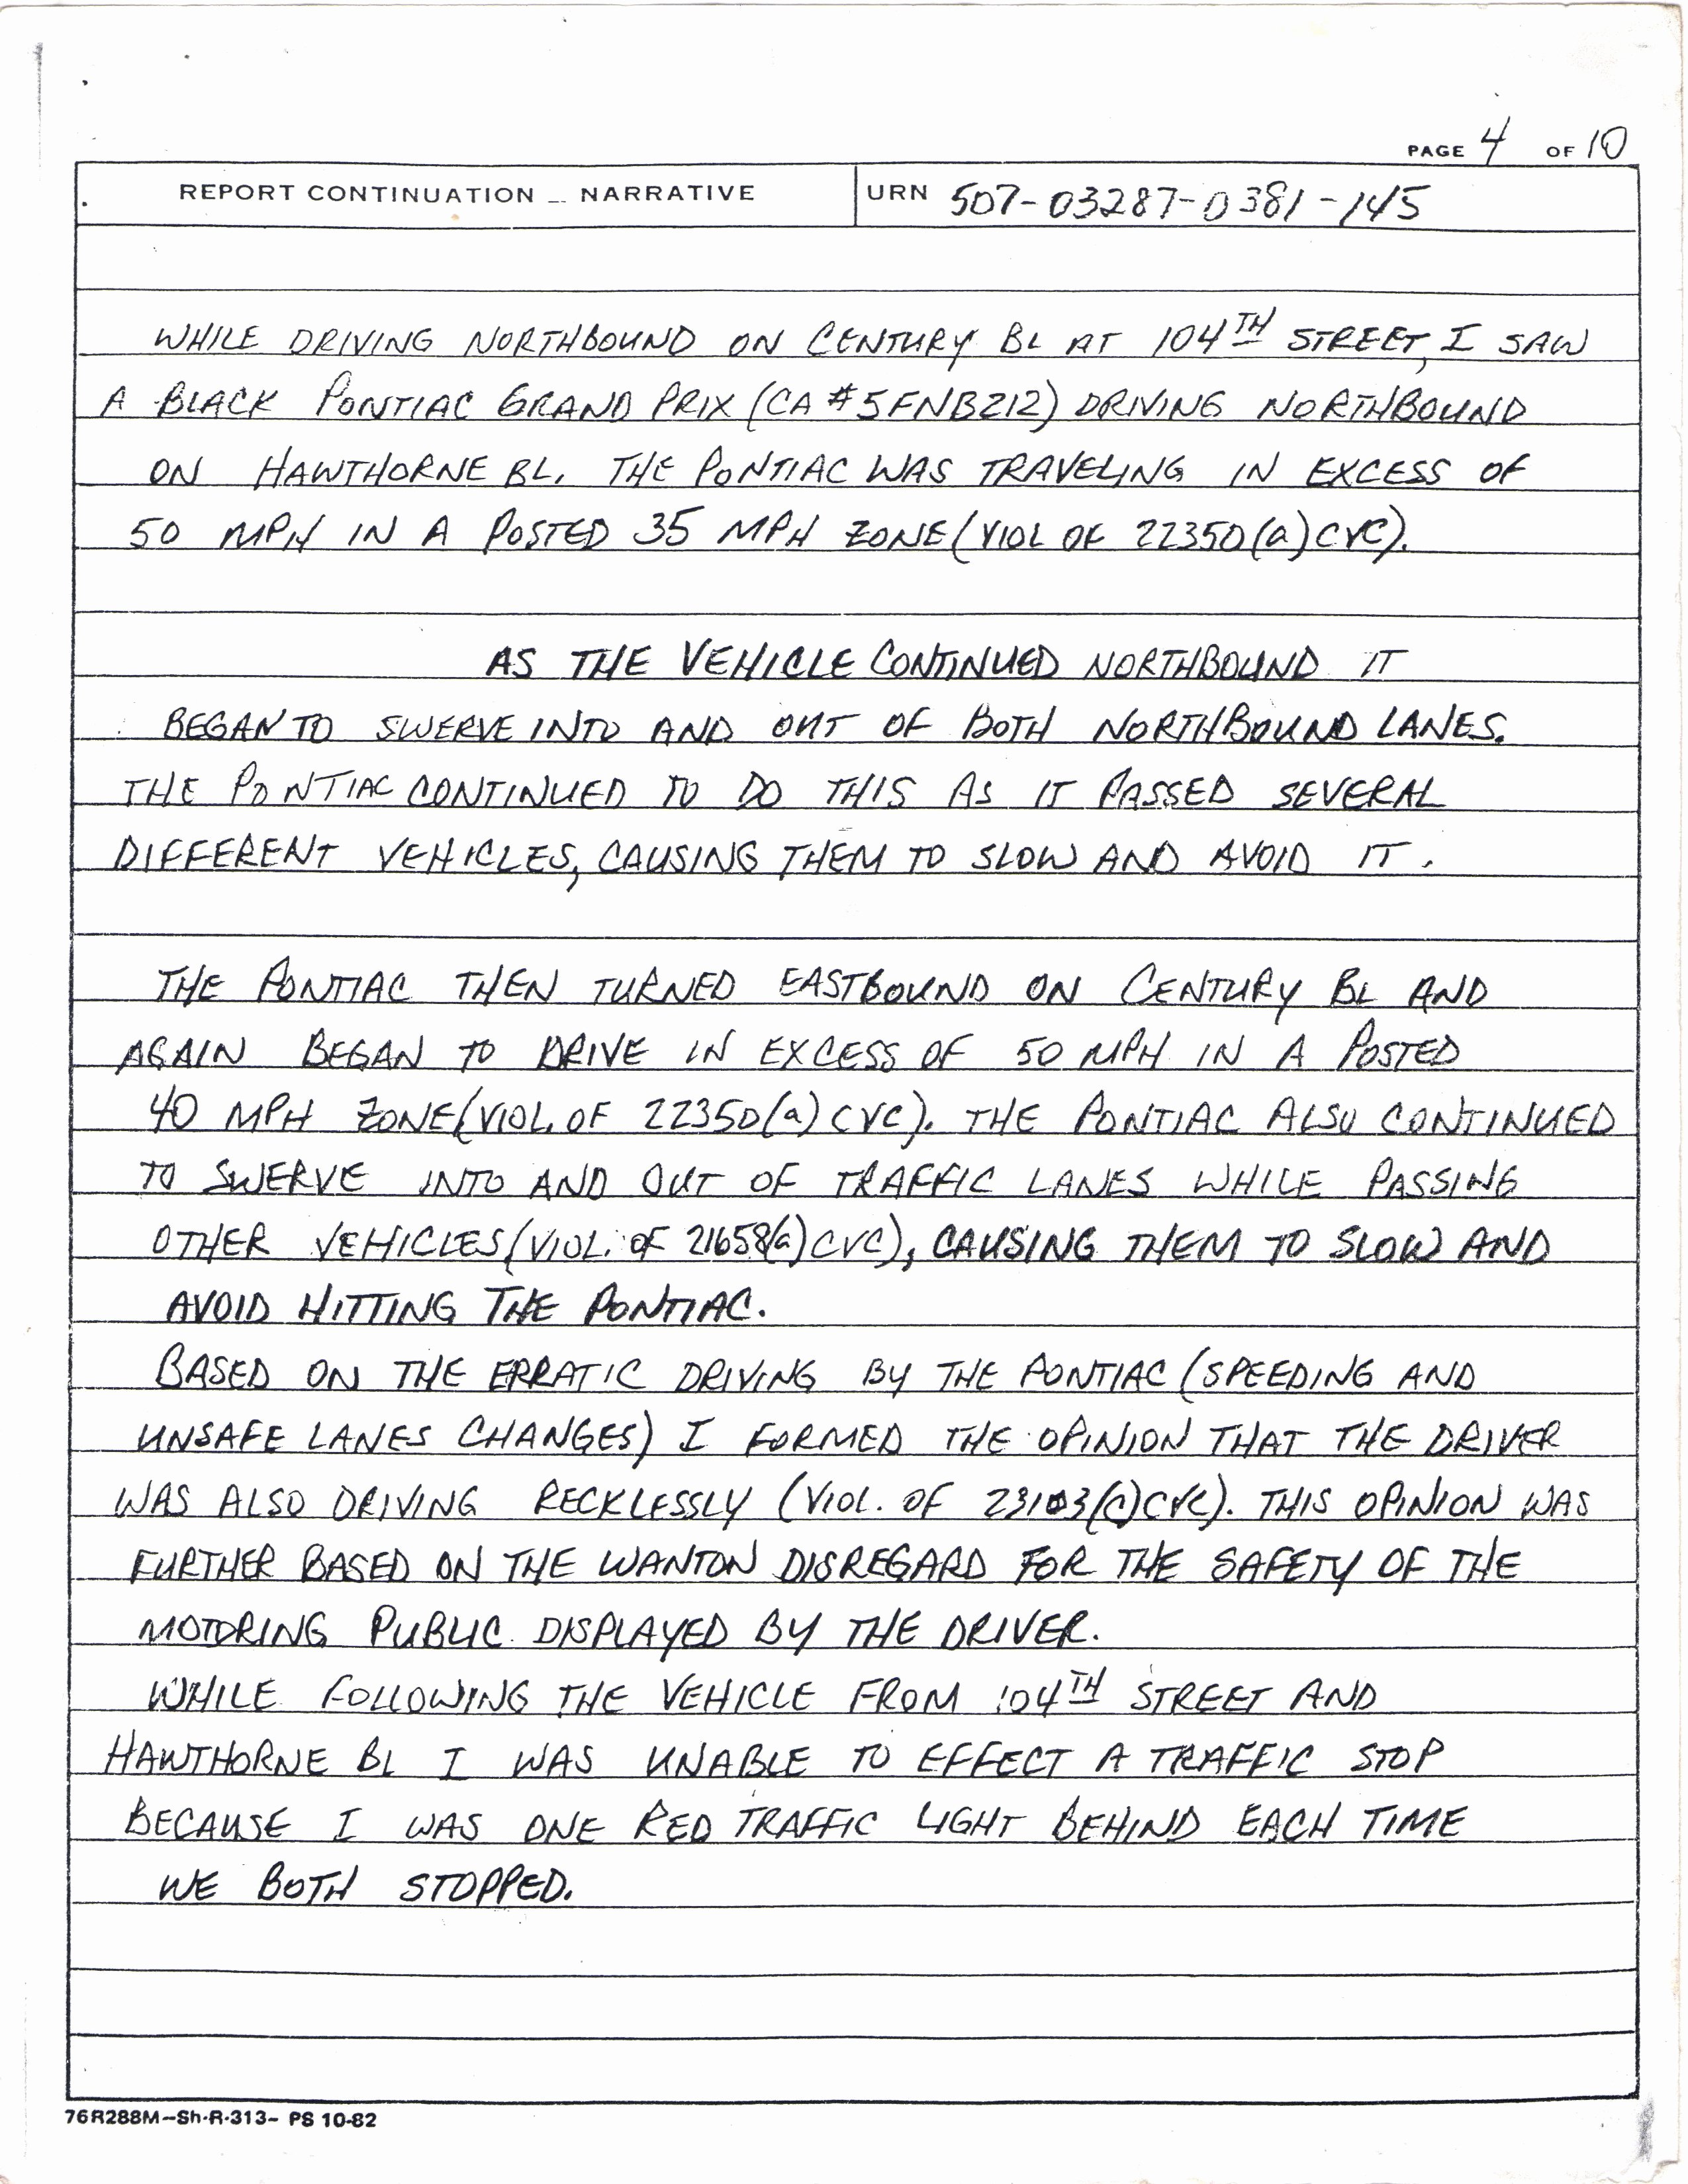 PAGE 4 OF 10
REPORT CONTINUATION -- NARRATIVE URN 507-03287-0381-145
WHILE DRIVING NORTHBOUND ON CENTURY BL AT 104TH STREET, I SAW
A BLACK PONTIAC GRAND PRIX (CA #5FNB212) DRIVING NORTHBOUND
ON HAWTHORNE BL. THE PONTIAC WAS TRAVELING IN EXCESS OF
50 MPH IN A POSTED 35 MPH ZONE (VIOL OF 22350(a) CVC).
AS THE VEHICLE CONTINUED NORTHBOUND IT
BEGAN TO SWERVE INTO AND OUT OF BOTH NORTHBOUND LANES.
THE PONTIAC CONTINUED TO DO THIS AS IT PASSED SEVERAL
DIFFERENT VEHICLES, CAUSING THEM TO SLOW AND AVOID IT.
THE PONTIAC THEN TURNED EASTBOUND ON CENTURY BL AND
AGAIN BEGAN TO DRIVE IN EXCESS OF 50 MPH IN A POSTED
40 MPH ZONE (VIOL. OF 22350(a) CVC). THE PONTIAC ALSO CONTINUED
TO SWERVE INTO AND OUT OF TRAFFIC LANES WHILE PASSING
OTHER VEHICLES (VIOL. OF 21658(a) CVC), CAUSING THEM TO SLOW AND
AVOID HITTING THE PONTIAC.
BASED ON THE ERRATIC DRIVING BY THE PONTIAC (SPEEDING AND
UNSAFE LANES CHANGES) I FORMED THE OPINION THAT THE DRIVER
WAS ALSO DRIVING RECKLESSLY (VIOL. OF 23103(c) CVC). THIS OPINION WAS
FURTHER BASED ON THE WANTON DISREGARD FOR THE SAFETY OF THE
MOTORING PUBLIC DISPLAYED BY THE DRIVER.
WHILE FOLLOWING THE VEHICLE FROM 104TH STREET AND
HAWTHORNE BL I WAS UNABLE TO EFFECT A TRAFFIC STOP
BECAUSE I WAS ONE RED TRAFFIC LIGHT BEHIND EACH TIME
WE BOTH STOPPED.
76R288M--Sh-R-313- PS 10-82